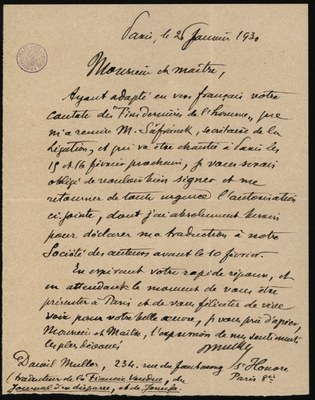 Paris, le 25 Janvier 1930
Monsieur et maître,
Ayant adapté en vers français votre
cantate des "Fins dernières de l'homme", que
m'a remise M. Šafránek, secrétaire de la
Légation, et qui va être chantée à Paris les
15 et 16 février prochains, je vous serais
obligé de vouloir bien signer et me
retourner de toute urgence l'autorisation
ci-jointe, dont j'ai absolument besoin
pour déclarer ma traduction à notre
Société des auteurs avant le 10 février.
En espérant votre rapide réponse, et
en attendant le moment de vous être
présenté à Paris et de vous féliciter de vive
voix pour votre belle œuvre, je vous prie d'agréer,
Monsieur et Maître, l'expression de mes sentiments
les plus dévoués
Daniel Muller, 234 rue du faubourg St Honoré
Paris 8e
(traducteur de la Fiancée Vendue, du
Journal d'un disparu, et de Jenufa.